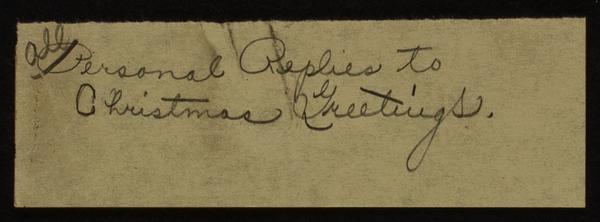 all Personal Replies to
Christmas Greetings.